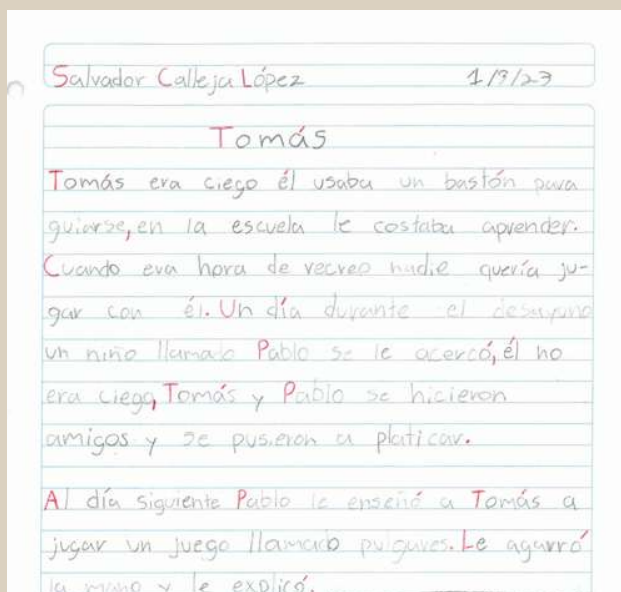 Salvador Calleja López 1/3/23
Tomás
Tomás era ciego él usaba un bastón para
guiarse, en la escuela le costaba aprender.
Cuando era hora de recreo nadie quería ju-
gar con él. Un día durante el desayuno
un niño llamado Pablo se le acercó, él no
era ciego, Tomás y Pablo se hicieron
amigos y se pusieron a platicar.
Al día siguiente Pablo le enseñó a Tomás a
jugar un juego llamado pulgares. Le agarró
la mano y le explicó.